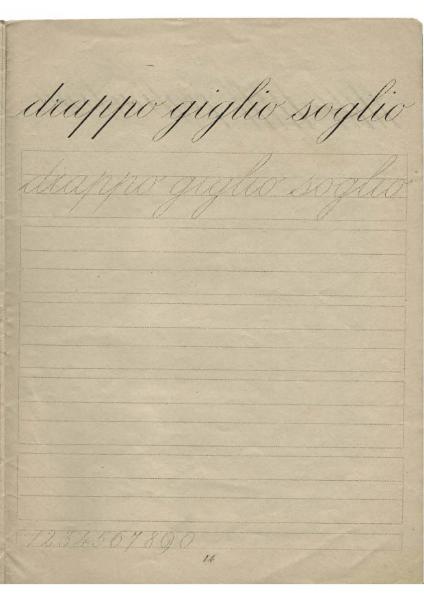 drappo giglio soglio
drappo giglio soglio
1234567890
14